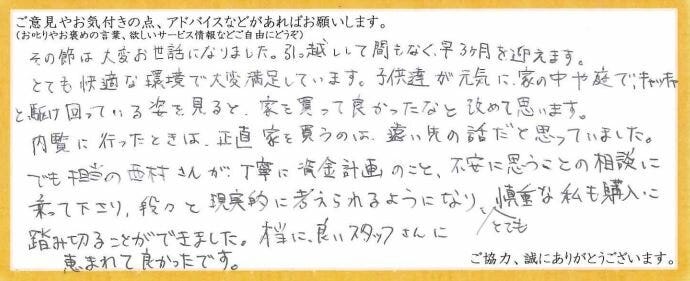 ご意見やお気付きの点、アドバイスなどがあればお願いします。
(お叱りやお褒めの言葉、欲しいサービス情報などご自由にどうぞ)
その節は大変お世話になりました。引っ越しして間もなく、早3ヶ月を迎えます。
とても快適な環境で大変満足しています。子供達が元気に、家の中や庭で、キャッキャ
と駆け回っている姿を見ると、家を買って良かったなと改めて思います。
内覧に行ったときは、正直家を買うのは、遠い先の話だと思っていました。
でも担当の西村さんが、丁寧に資金計画のこと、不安に思うことの相談に
乗って下さり、段々と現実的に考えられるようになり、とても慎重な私も購入に
踏み切ることができました。本当に、良いスタッフさんに
恵まれて良かったです。
ご協力、誠にありがとうございます。